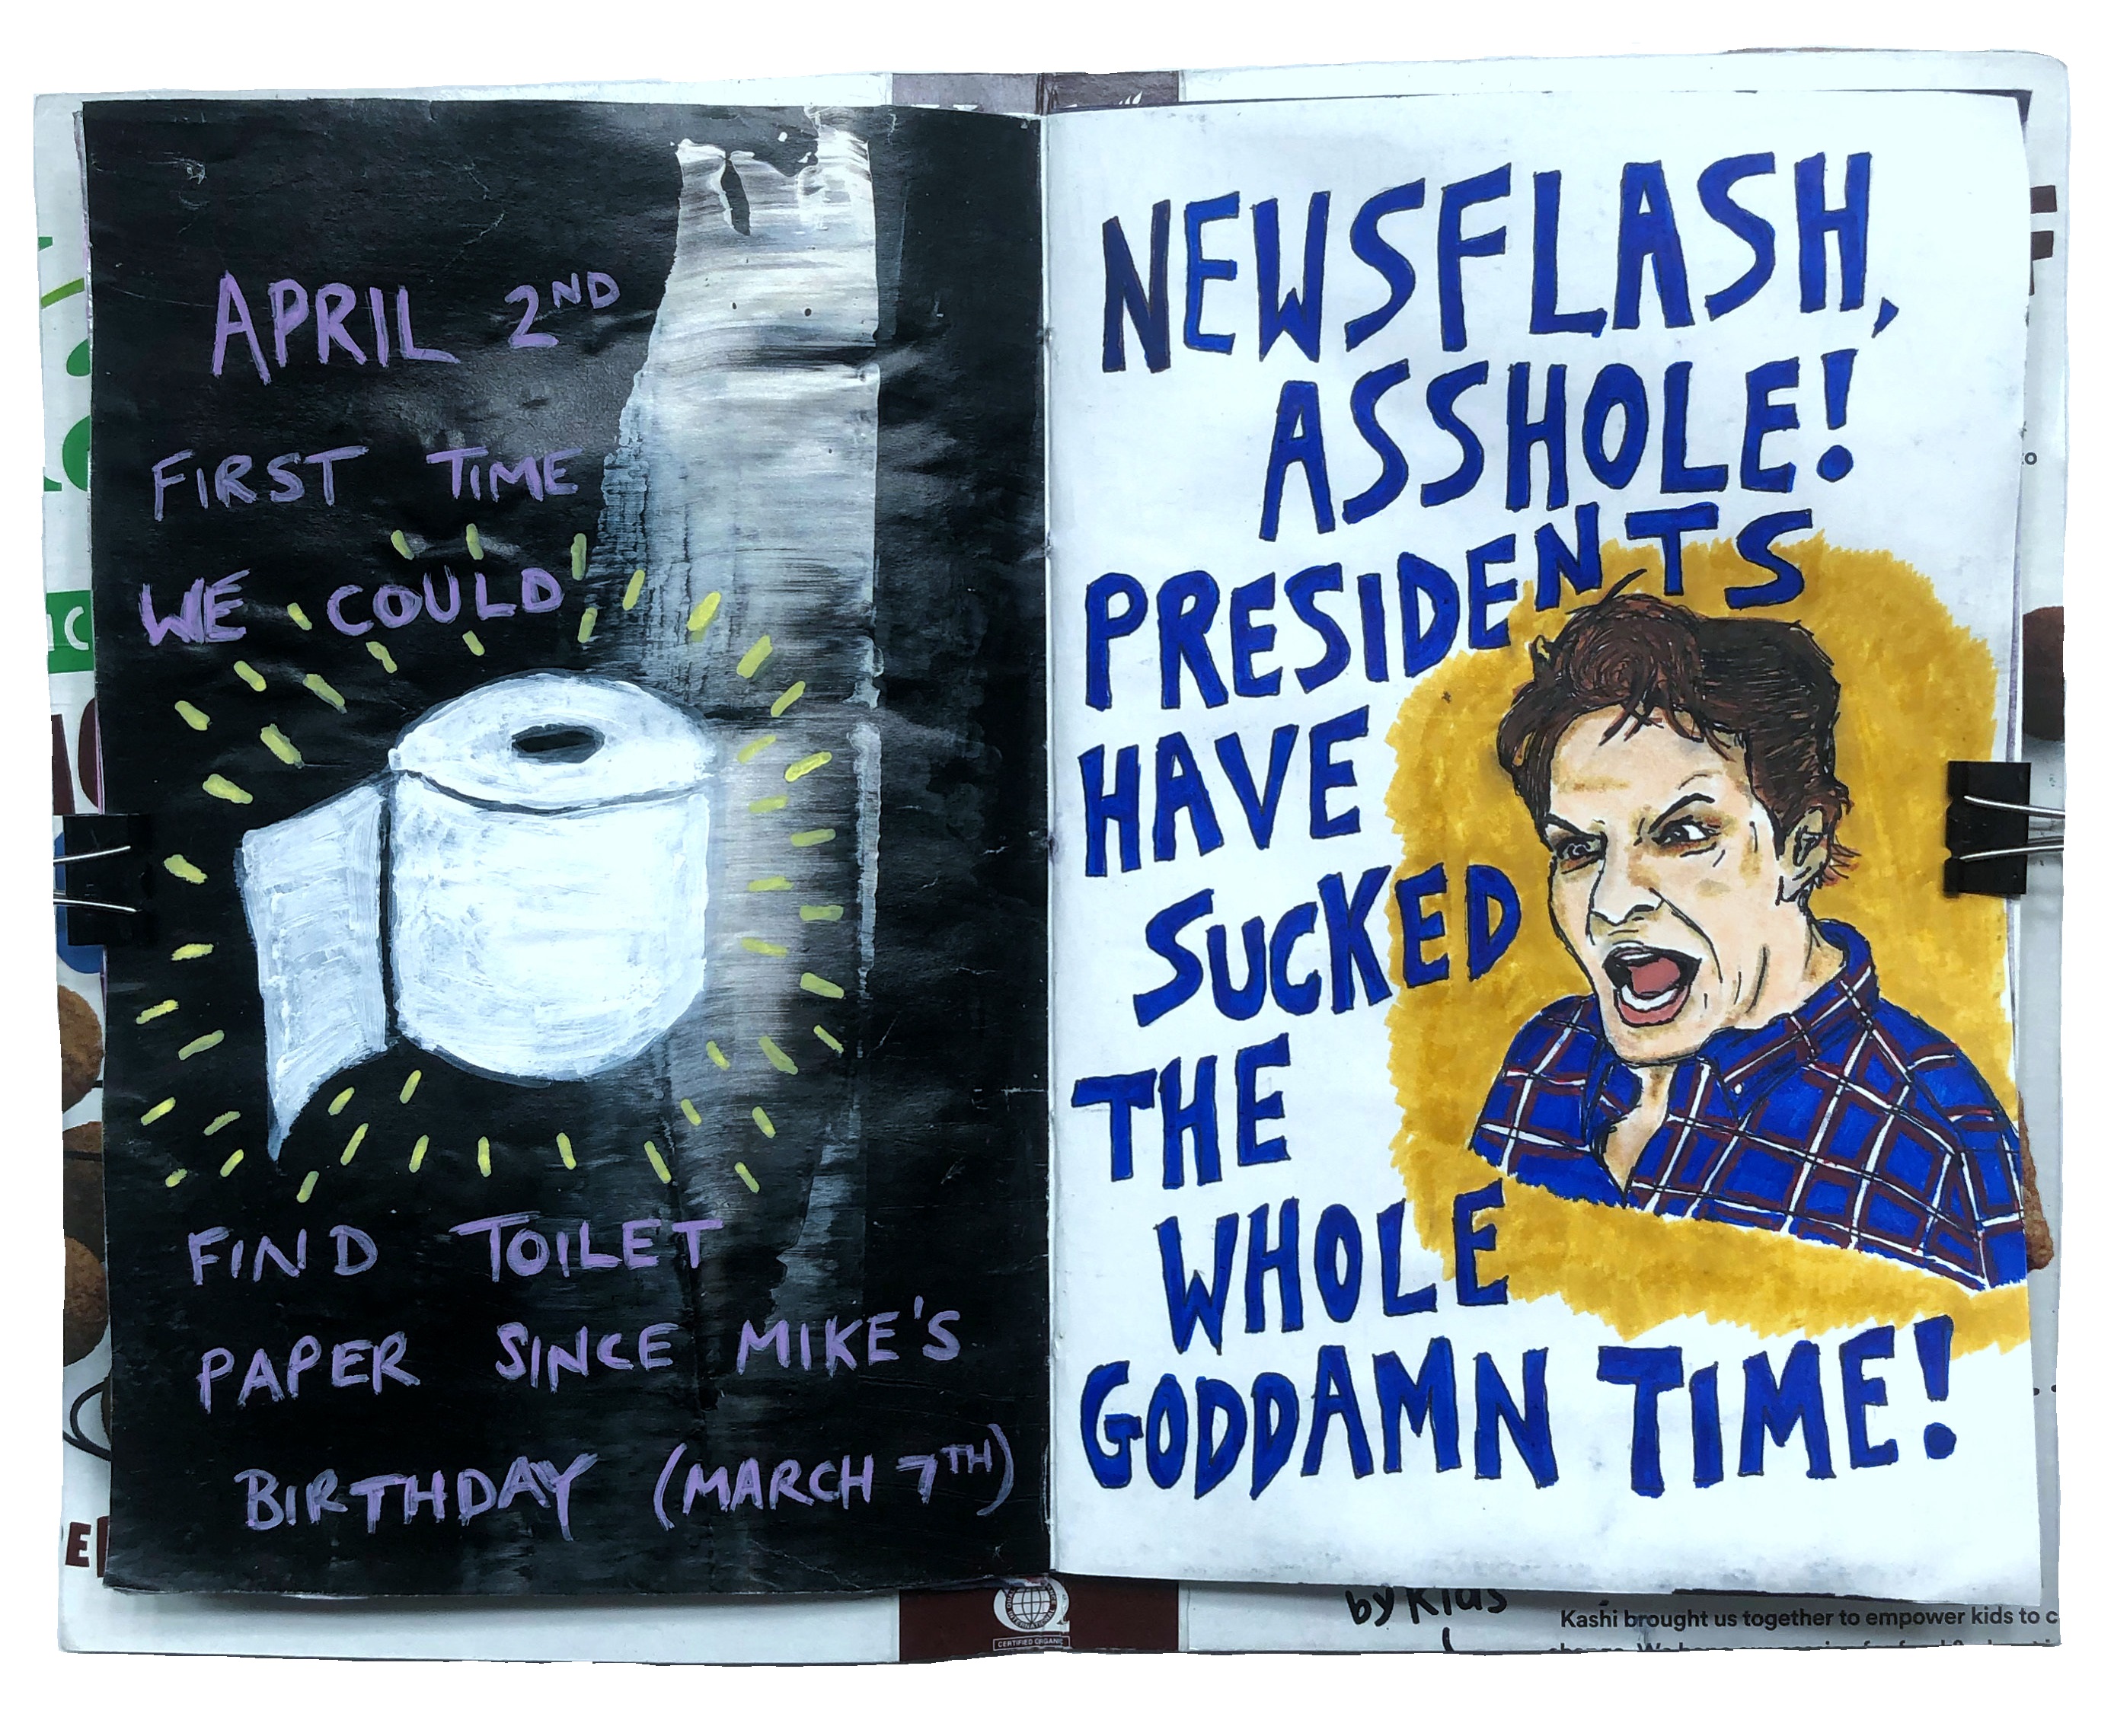 APRIL 2ND
FIRST TIME
WE COULD
FIND TOILET
PAPER SINCE MIKE'S
BIRTHDAY (MARCH 7TH)
NEWSFLASH,
ASSHOLE!
PRESIDENTS
HAVE
SUCKED
THE
WHOLE
GODDAMN TIME!
CERTIFIED ORGANIC
by Kids
Kashi brought us together to empower kids to c